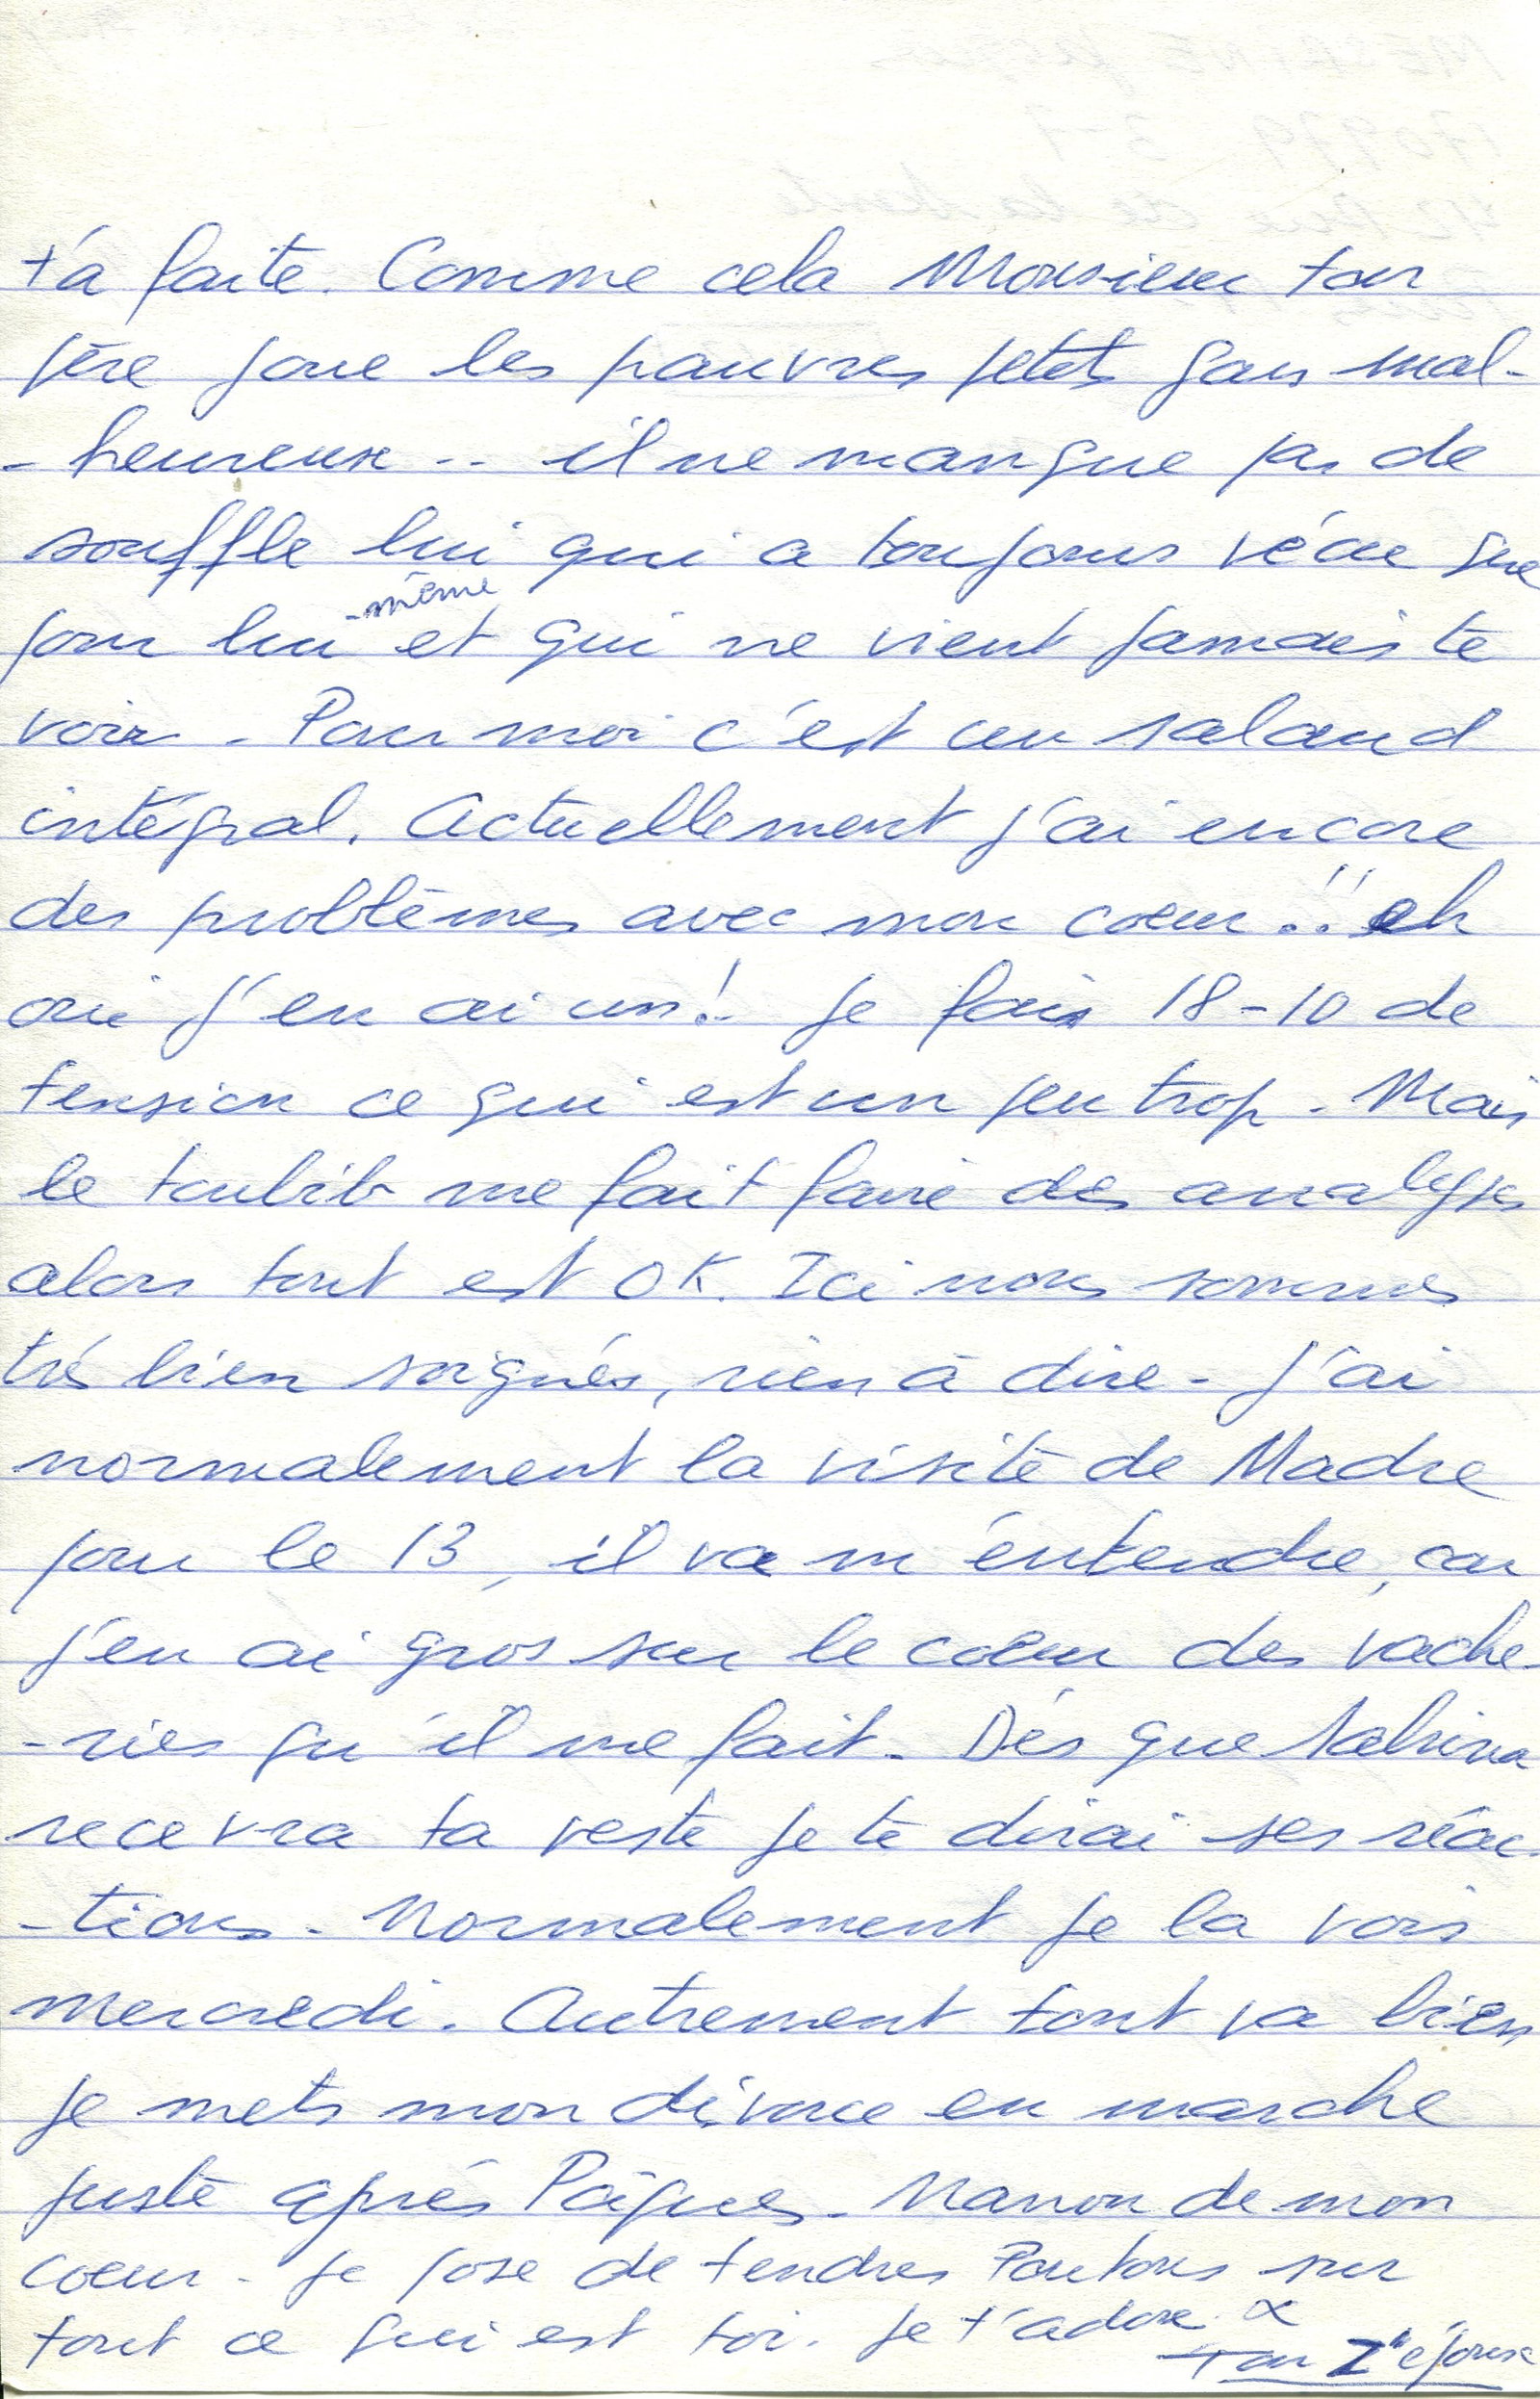 t'a faite. Comme cela Monsieur ton
père joue les pauvres petits gars mal-
-heureux -- il ne manque pas de
souffle lui qui a toujours vécu que
pour lui-même et qui ne vient jamais te
voir - Pour moi c'est un salaud
intégral. Actuellement j'ai encore
des problèmes avec mon coeur !! eh
oui j'en ai un! je fais 18-10 de
tension ce qui est un peu trop. Mais
le toubib me fait faire des analyses
alors tout est OK. Ici nous sommes
trés bien soignés, rien à dire - J'ai
normalement la visite de Madre
pour le 13, il va m'entendre, car
j'en ai gros sur le coeur des vache-
-ries qu'il me fait - Dès que Sabrina
recevra ta veste je te dirai ses réac-
-tions - Normalement je la vois
mercredi. Autrement tout va bien
je mets mon divorce en marche
juste après Pâques. Manou de mon
coeur - je pose de tendres Poutous sur
tout ce qui est toi. Je t'adore
Ton Z'épouse